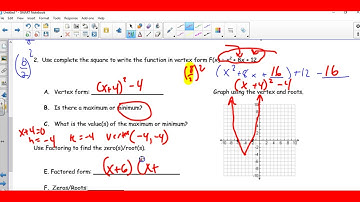 SMART Notebook
2. Use complete the square to write the function in vertex form F(x) = x² + 8x + 12
(8/2)² (x² + 8x + 16) + 12 - 16
(x + 4)² - 4
A. Vertex form: (x+4)² - 4
Graph using the vertex and roots.
B. Is there a maximum or minimum?
C. What is the value(s) of the maximum or minimum?
x+4=0
h = -4 k = -4 vertex (-4, -4)
Use Factoring to find the zero(s)/root(s).
E. Factored form: (x+6)(x+
F. Zeros/Roots: